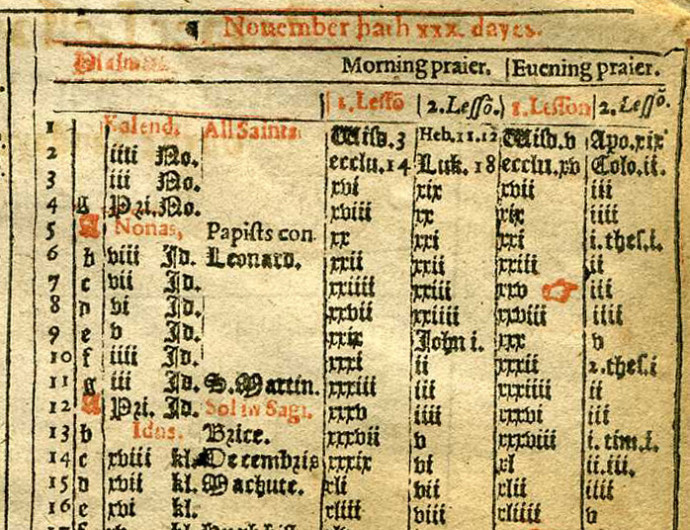 Nouember hath xxx. dayes.
Psalmes. Morning praier. Euening praier.
1. Lessō 2. Lessō. 1. Lesson 2. Lessō.
1 Kalend. All Saints Wisd. 3 Heb. 11. 12 Wisd. v Apo. xix
2 iiii No. ecclu. 14 Luk. 18 ecclu. xv Colo. ii.
3 iii No. xvi xix xvii iii
4 g Pri. No. xviii xx xix iiii
5 A Nonas, Papists con. xx xxi xxi i. thes. i.
6 b viii Id. Leonard. xxii xxii xxiii ii
7 c vii Id. xxiiii xxiii xxv iii
8 d vi Id. xxvii xxiiii xxviii iiii
9 e v Id. xxix John i. xxx v
10 f iiii Id. xxxi ii xxxii 2. thes. i
11 g iii Id. S. Martin. xxxiii iii xxxiiii ii
12 A Pri. Id. Sol in Sagi. xxxv iiii xxvi iii
13 b Idus. Brice. xxxvii v xxxviii i. tim. i.
14 c xviii kl. Decembris xxxix vi xl ii. iii.
15 d xvii kl. Machute. xli vii xlii iiii
16 e xvi kl. xliii viii xliiii v